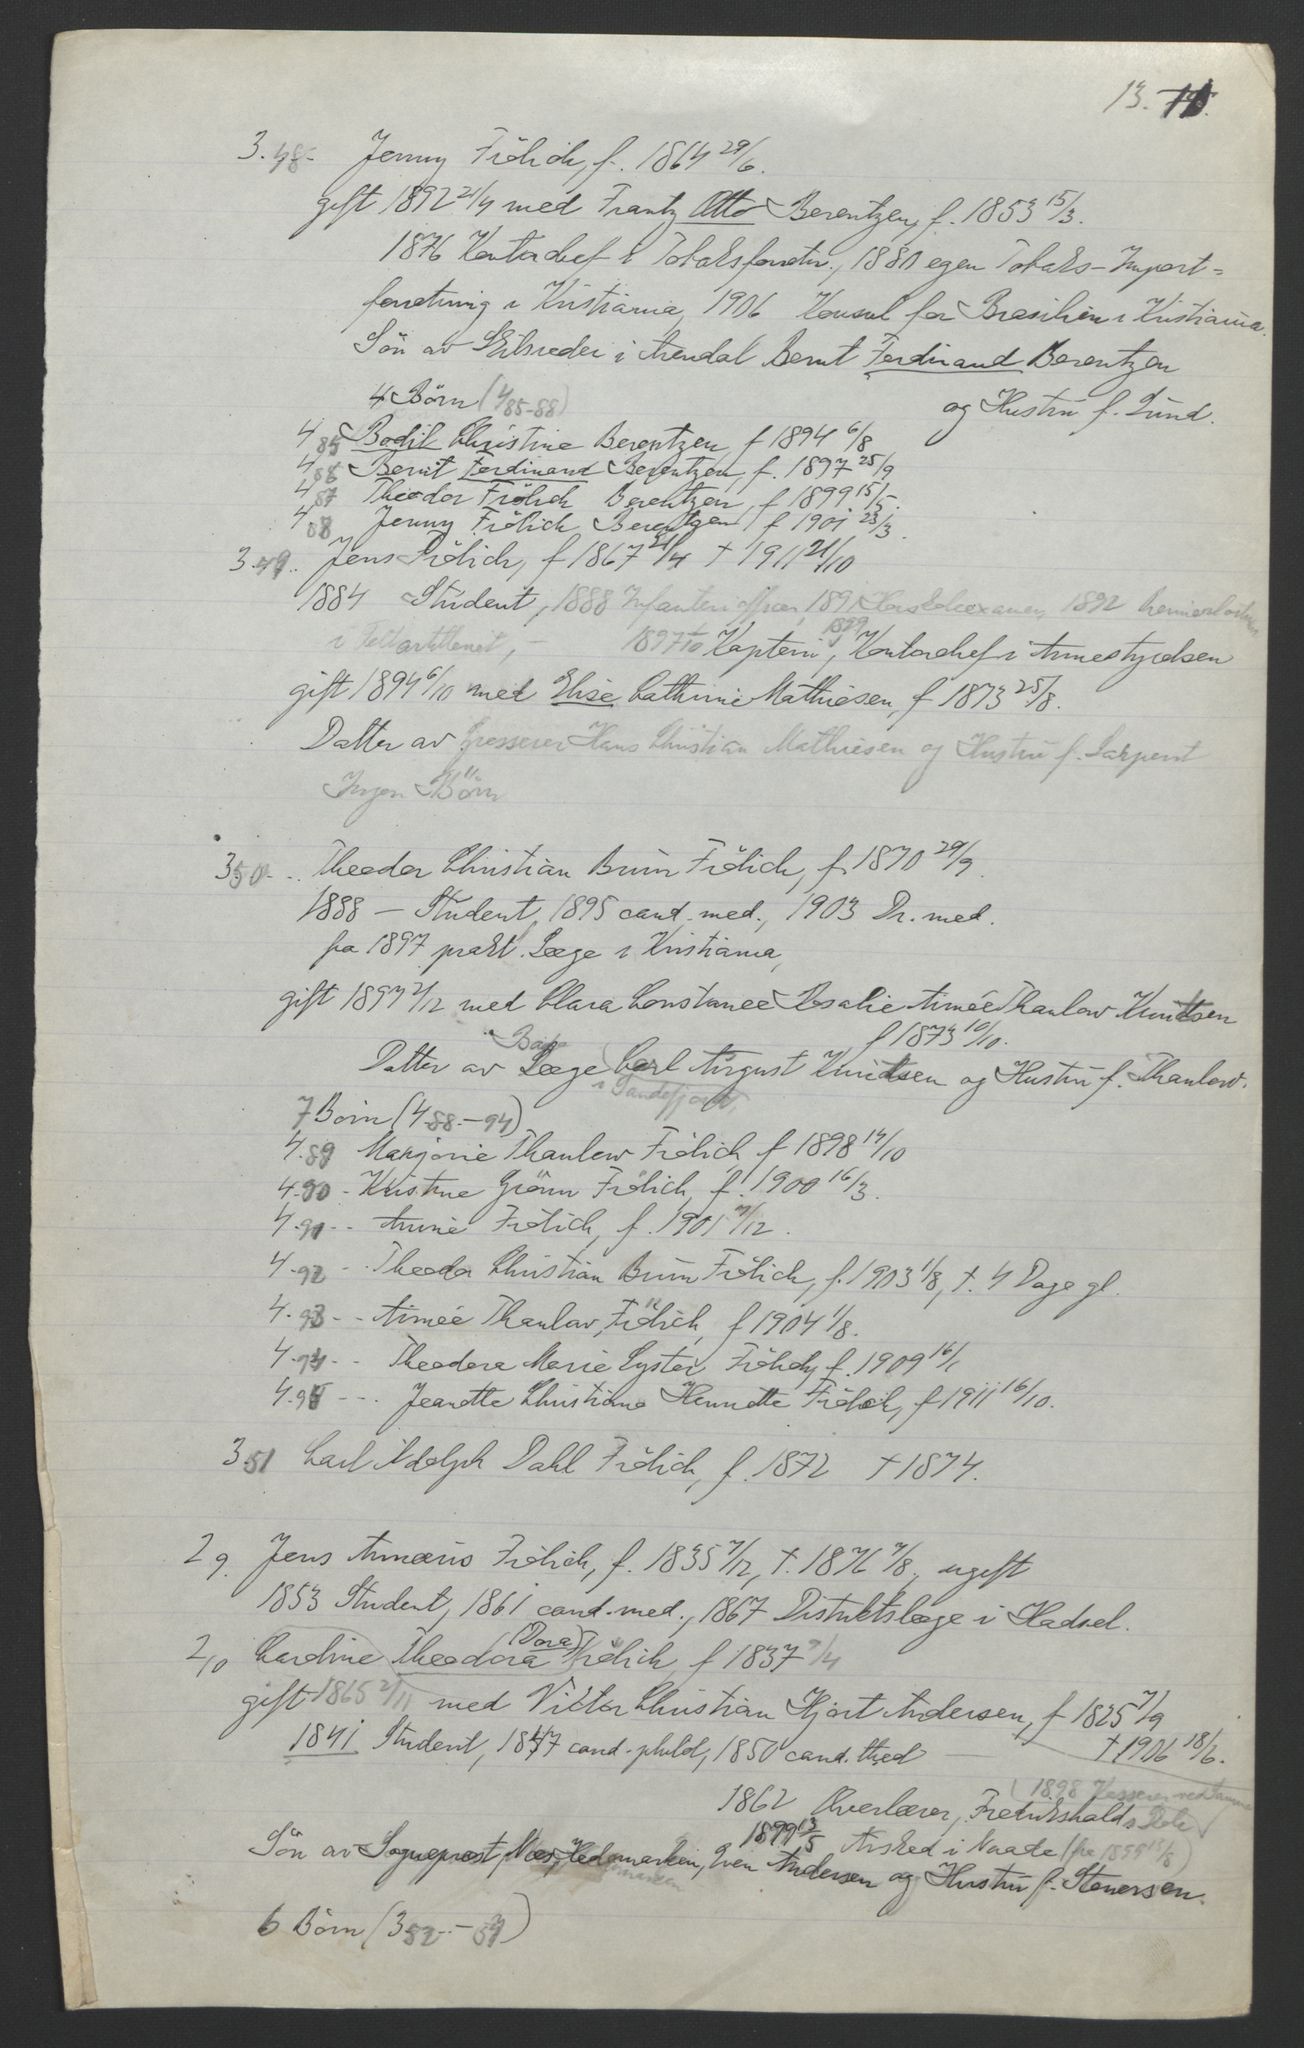 13.
3.48- Jenny Frölich, f. 1864 29/6.
gift 1892 21/9 med Frantz Otto Berentzen, f. 1853 15/3.
1876 Kontorchef i Tobaksforretn., 1880 egen Tobaks-Import-
forretning i Kristiania, 1906 Konsul for Brasilien i Kristiania.
Sön av Skibsreder i Arendal Bernt Ferdinand Berentzen
og Hustru f. Lund.
4 Börn (4 85-88)
4 85 Bodil Christine Berentzen f 1894 6/8
4 86 Bernt Ferdinand Berentzen, f. 1897 25/9
4 87 Theodor Frölich Berentzen, f 1899 15/5.
4 88 Jenny Frölich Berentzen f 1901 23/3.
3.49.. Jens Frölich, f 1867 21/4 † 1911 21/10
1884 Student, 1888 Infanteriofficer, 1892 Premierløitnant
i Feltartilleriet, - 1897 1/10 Kaptein, 1899 Kontorchef i Armestyrelsen
gift 1894 6/10 med Elise Cathrine Mathiesen, f 1873 25/8.
Datter av Grosserer Hans Christian Mathiesen og Hustru f. Larpent
Ingen Börn
3 50-.. Theodor Christian Brun Frölich, f. 1870 29/9.
1888 - Student, 1895 cand. med., 1903 Dr. med.
fra 1897 prakt. Læge i Kristiania,
gift 1897 2/12 med Clara Constance Rosalie Aimée Thaulow Knudtsen
f 1873 10/10.
Datter av Læge Carl August Knudtsen og Hustru f. Thaulow.
i Sandefjord,
7 Börn (4 88.-94)
4.89 Marjorie Thaulow Frölich f 1898 14/10
4.90 - Kristine Grönn Frölich, f. 1900 16/3.
4.91 -- Annie Frölich, f. 1901 7/12.
4.92 -- Theodor Christian Brun Frölich, f. 1903 1/8, †. 4 Dage gl.
4.93 -- Aimée Thaulow Frölich, f 1904 1/8.
4.94 -- Theodora Marie Lyster Frölich, f. 1909 16/1
4.95 -- Jeanette Christiane Henriette Frölich, f 1911 16/10.
3 51 Carl Adolph Dahl Frölich, f. 1872 † 1874.
2 9. Jens Amæus Frölich, f. 1835 7/12, †. 1876 7/8, ugift
1853 Student, 1861 cand. med., 1867 Distriktslæge i Hadsel.
2 10 Caroline Theodora (Dora) Frölich, f 1837 9/4
gift 1865 2/11 med Victor Christian Hjort Andersen, f 1825 7/9
† 1906 18/6.
1841 Student, 1847 cand. philol, 1850 cand. theol
1862 Overlærer, Fredrikshalds Skole
(1898 Kasserer ved samme
1899 13/5 Avsked i Naade (fra 1899 13/8)
Sön av Sogneprest, Næs, Hedemarken, Even Andersen og Hustru f. Stenersen.
6 Börn (3 52--57)